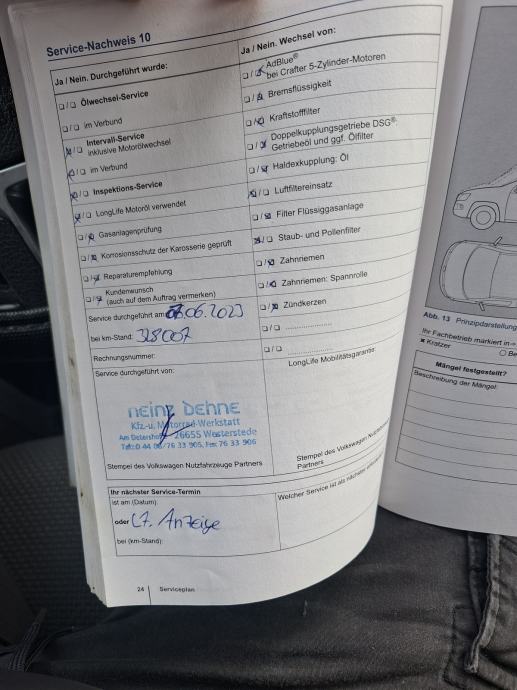 Service-Nachweis 10
Ja / Nein. Durchgeführt wurde:
❑/❑ Ölwechsel-Service
❑/❑ im Verbund
❑/❑ Intervall-Service
inklusive Motorölwechsel
❑/❑ im Verbund
❑/❑ Inspektions-Service
❑/❑ LongLife Motoröl verwendet
❑/❑ Gasanlagenprüfung
❑/❑ Korrosionsschutz der Karosserie geprüft
❑/❑ Reparaturempfehlung
❑/❑ Kundenwunsch
(auch auf dem Auftrag vermerken)
Service durchgeführt am 07.06.2023
bei km-Stand: 328007
Rechnungsnummer:
Service durchgeführt von:
Heinz Dehne
Kfz-u. Motorrad-Werkstatt
26655 Westerstede
76 33 905, Fax 76 33 906
Stempel des Volkswagen Nutzfahrzeuge Partners
Ihr nächster Service-Termin
ist am (Datum):
oder Lt. Anzeige
bei (km-Stand):
24 | Serviceplan
Ja / Nein. Wechsel von:
❑/❑ AdBlue®
bei Crafter 5-Zylinder-Motoren
❑/❑ Bremsflüssigkeit
❑/❑ Kraftstofffilter
❑/❑ Doppelkupplungsgetriebe DSG®:
Getriebeöl und ggf. Ölfilter
❑/❑ Haldexkupplung: Öl
❑/❑ Luftfiltereinsatz
❑/❑ Filter Flüssiggasanlage
❑/❑ Staub- und Pollenfilter
❑/❑ Zahnriemen
❑/❑ Zahnriemen: Spannrolle
❑/❑ Zündkerzen
❑/❑ ....................
❑/❑ ....................
LongLife Mobilitätsgarantie:
Stempel des Volkswagen Nutzfahrzeuge
Partners
Welcher Service ist als nächster
Abb. 13 Prinzipdarstellung
Ihr Fachbetrieb markiert in
× Kratzer
Mängel festgestellt?
Beschreibung der Mängel: